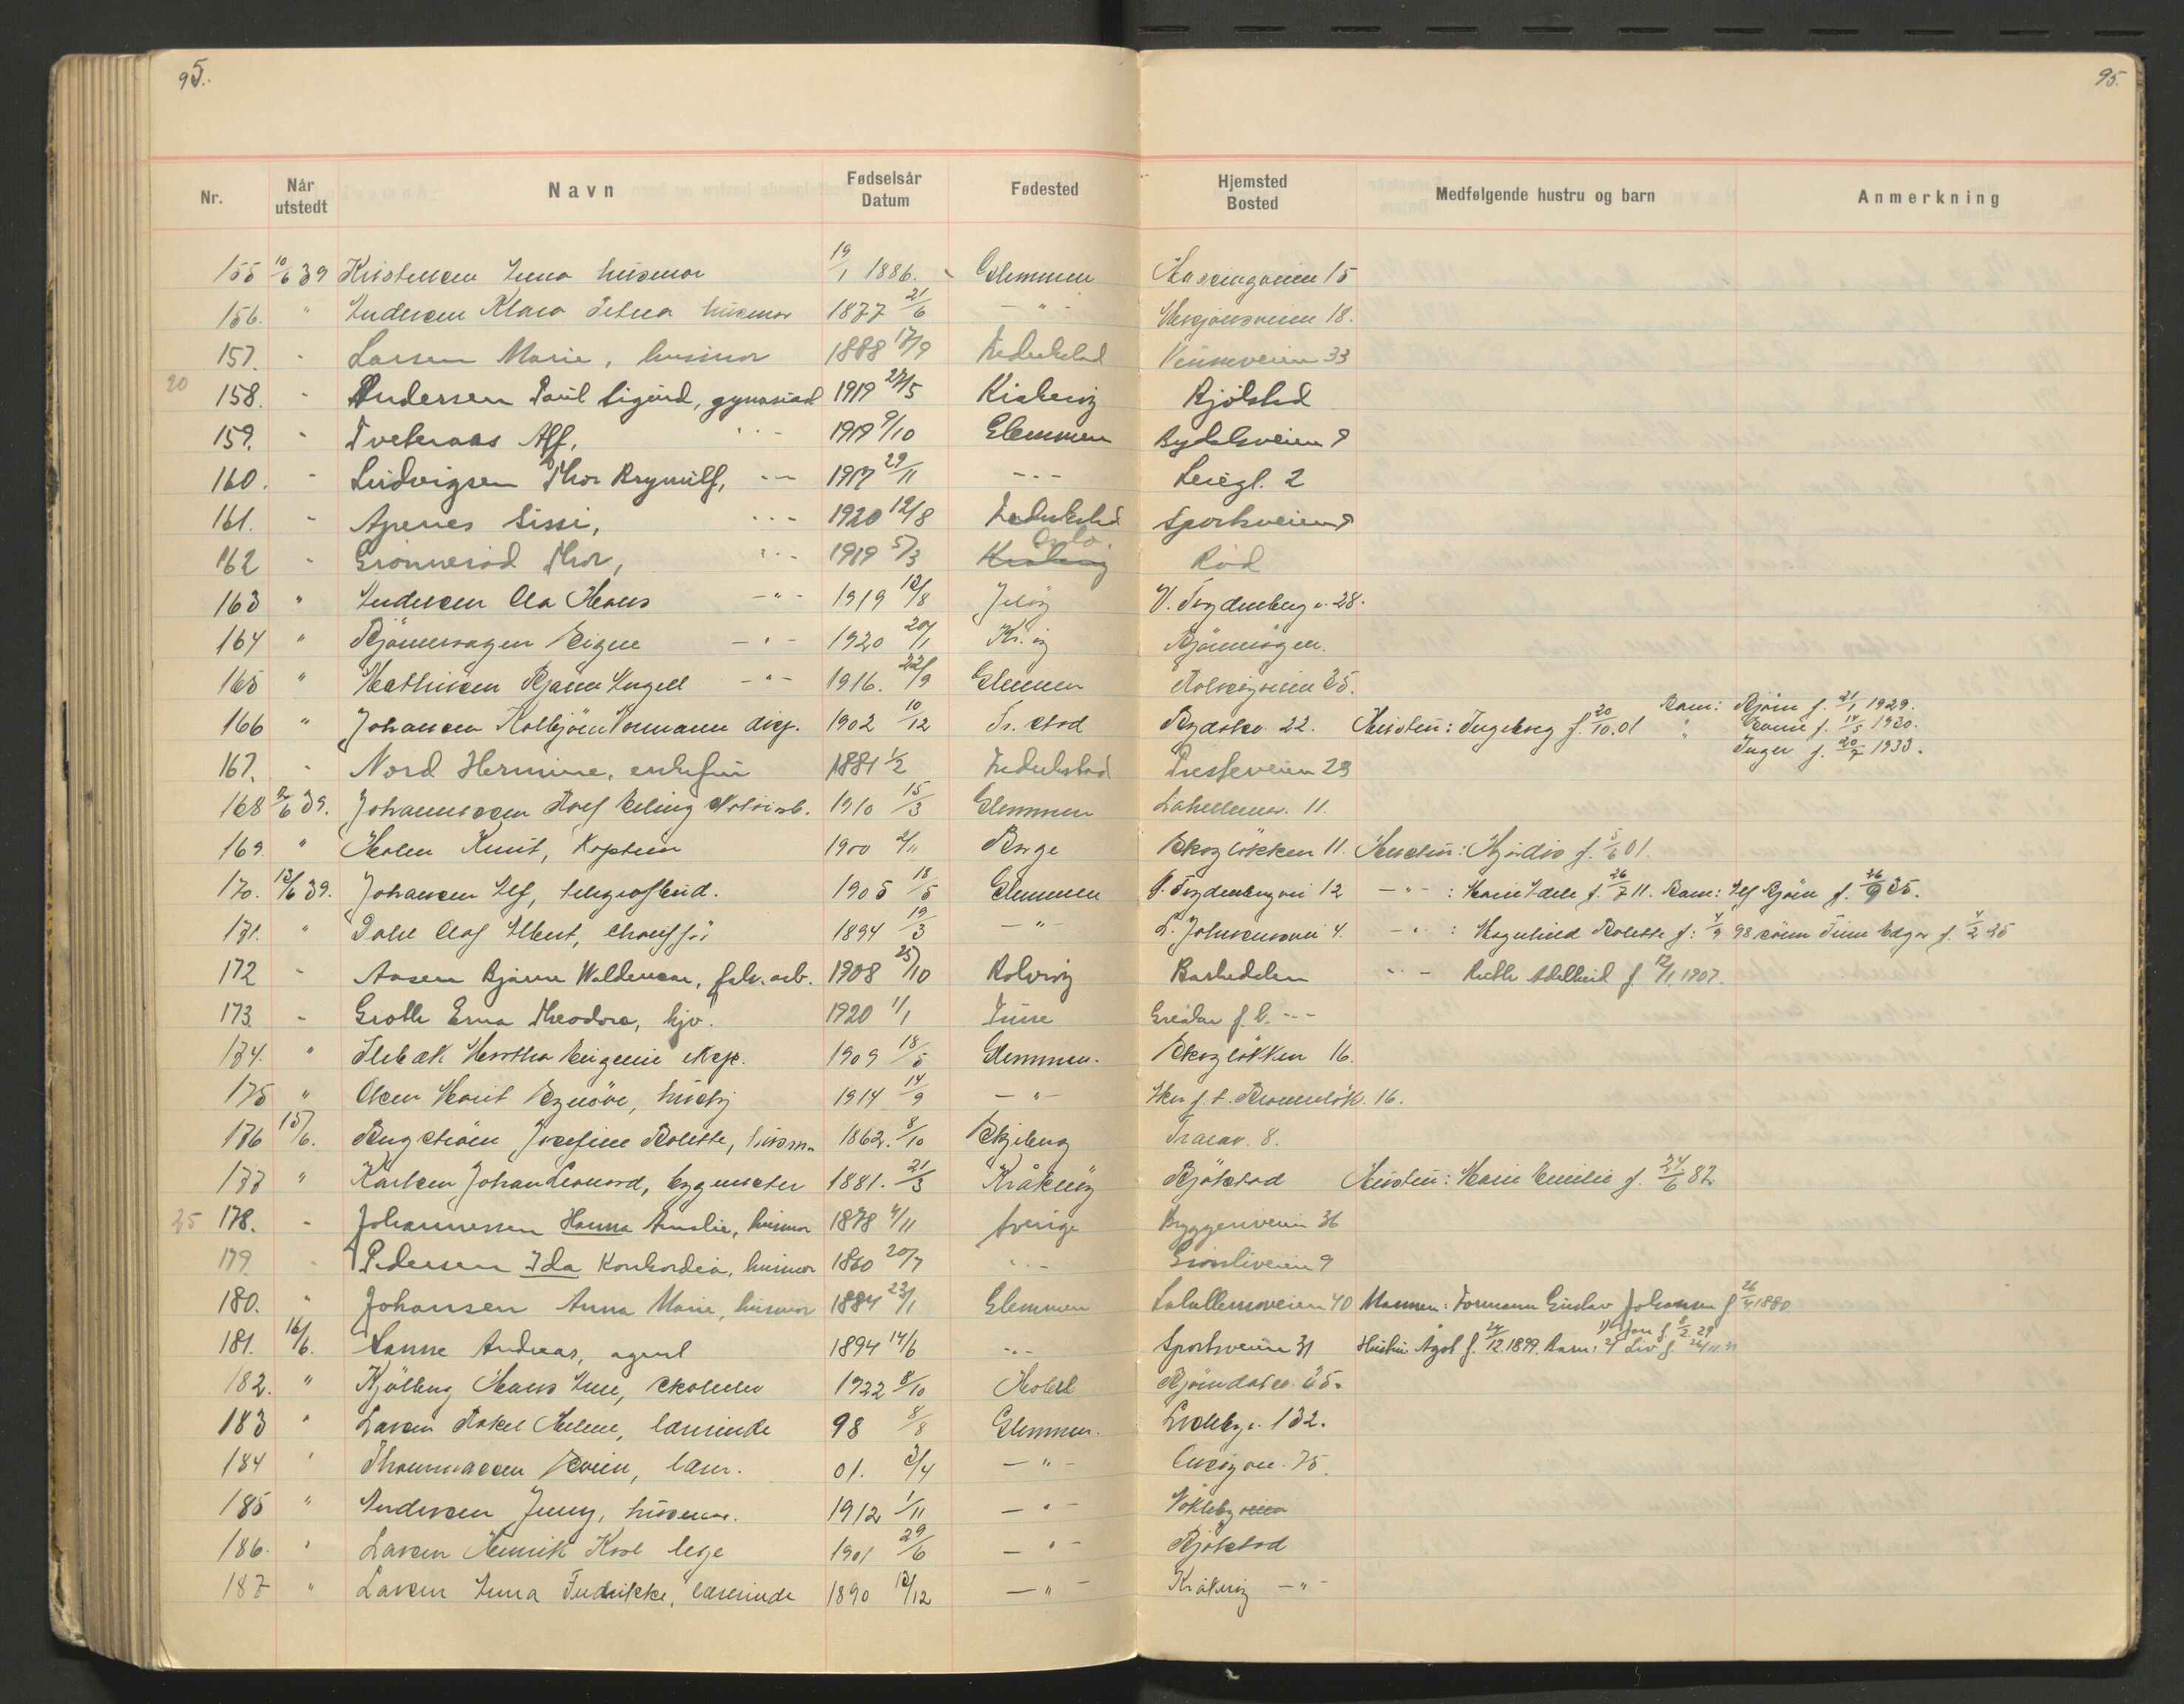 95.
95.
Nr. Når utstedt Navn Fødselsår Datum Fødested Hjemsted Bosted Medfølgende hustru og barn Anmerkning
155 10/6 39 Kristensen Anna husmor 19/1 1886. Glemmen 15
156. " Andersen Klara Petrea husmor 1877 21/6 - " - 18.
157. - Larsen Marie, husmor 1888 17/9 Fredrikstad 33
20 158. - Andersen Paul Sigurd, gymnasiast 1919 27/5 Kråkerøy Bjølstad
159. - Tveteraas Alf, " - 1919 9/10 Glemmen Bydalsveien 9
160. - Ludvigsen Thor Brynulf, - " - 1917 29/11 - " - Leiegl. 2
161. - Apenes Sissi, - " - 1920 12/8 Fredrikstad Sportsveien 9
162 - Grønnerød Thor, " - 1919 5/3 Kråkerøy Oslo. Rød
163 " Andersen Ola Hans - " - 1919 12/8 Jeløy V. Frydenberg v. 28.
164 " Bjørneragen Signe - " - 1920 20/1 Kr.øy Bjørnrågen.
165 " Mathisen Bjarne Ingell - " - 1916. 22/9 Glemmen Rolvsøyveien 25.
166 " Johansen Kolbjørn Normann disp. 1902 10/12 Fr.stad Bydalsv. 22. Hustru: Ingeborg f. 20/10.01 Barn: Bjørn f. 21/1 1929.
" Sonni f. 14/5 1930.
Inger f. 20/7 1933.
167. - Nord Hermine, enkefru 1881 1/2 Fredrikstad Presteveien 23
168 39. Johannessen Rolf Erling 1910 15/3 Glemmen Lahellemv. 11.
169. " Holm Knut, Kaptein 1900 2/11 Borge Skogløkken 11. Hustru: Hjørdis f. 5/6 01.
170. 13/6 39. Johansen Alf, telegrafbud. 1905 18/5 Glemmen Frydenbergvei 12 - " - : Marie Adele f. 26/7 11. Barn: Alf Bjørn f. 26/9 35.
171. " Dahl Olaf Albert, chauffør 1894 19/3 - " - 4. - " - : Magnhild Bolette f: 4/9 98 sønn Finn Edgar f. 4/2 25
172 - Aasen Bjarne Waldemar, fabr.arb. 1908 25/10 Rolvsøy " - Ruth Adelheid f 12/1 1907.
173. - Groth Erna Theodora, hjv. 1920 11/1 Tune
174. " Ilebæk Martha Eugenie eksp. 1909 18/5 Glemmen. Skogløkken 16.
175 " Olsen Marit Synøve, hushj 1914 14/9 - " - 16.
176 15/6. Bergstrøm Josefine Bolette, husm. 1862. 8/10 Skjeberg Trarav. 8.
177 " Karlsen Johan Leonard, bygmester 1881. 21/3 Kråkerøy Bjølstad Hustru: Marie Emilie f. 24/6 82
25 178. - Johannessen Hanna Amalie, husmor 1878 4/11 Sverige Bryggeriveien 36
179. - Pedersen Ida Konkordia, husmor 1860 20/7 - " - Grønliveien 9
180. " Johansen Anna Marie, husmor 1884 23/1 Glemmen Lahellemsveien 40 Mannen: Formann Gustav Johansen f 26/4 1880
181. 16/6. Sanne Andreas, agent 1894 14/6 - " - Sportsveien 31 Hustru Agot f. 24/12 1899. Barn: 1) Jan f. 8/2 29
2) Liv f. 24/11 31
182. " Kjølberg Hans Arne, skoleelev 1922 8/10 Hobøl Bjørndalsv. 25.
183 " Larsen Rakel Helene, lærerinde 98 8/8 Glemmen. Lisleby v. 132.
184 " Thommassen Svein, lærer. 01. 2/4 - " - 75.
185 " Andersen Jenny, husmor. 1912 1/11 - " - Vøklebyveien
186. " Larsen Henrik Koss lege 1901 29/6 - " - Bjølstad
187 " Larsen Anna Fredrikke, lærerinde 1890 13/12 - " - Kråkerøy - " -